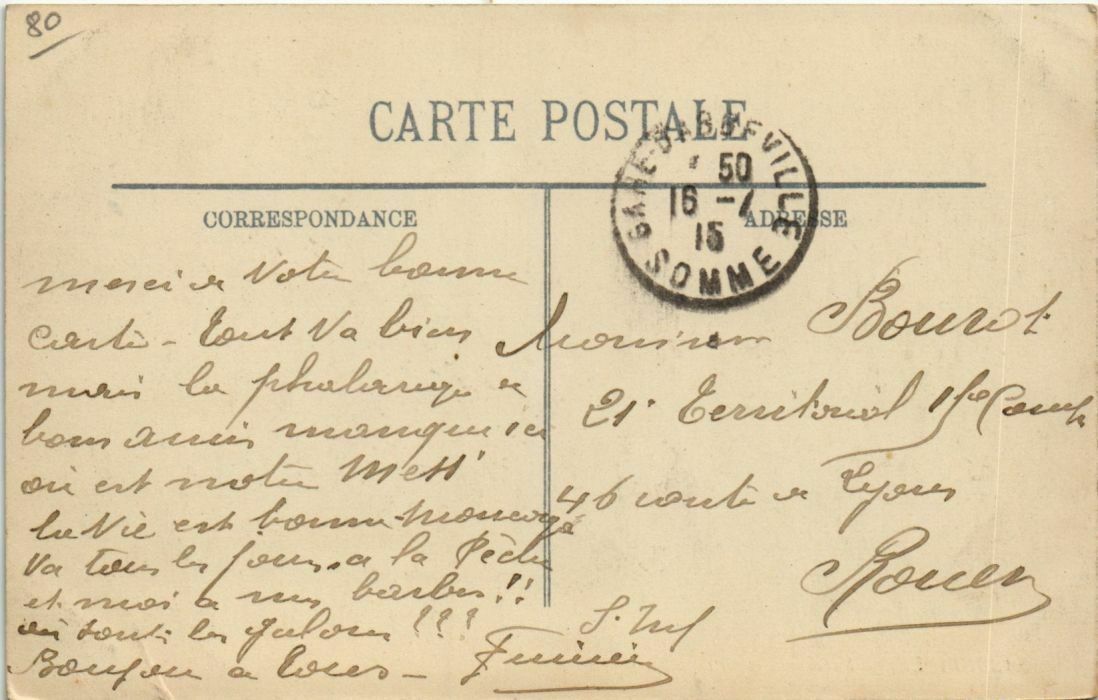 80
CARTE POSTALE
GARE D'ABBEVILLE
50
16 - 7
15
SOMME
CORRESPONDANCE
ADRESSE
merci de votre bonne
carte - tout va bien
mais la phalange de
bons amis manque ici
où est notre Mess
la vie est bonne
va tous les jours a la Pêche
et moi a mes barbes !!
où sont les galons ???
Bonjour a tous -
Monsieur Bourot
21e Territorial 1re Comp
46 route de Lyons
Rouen